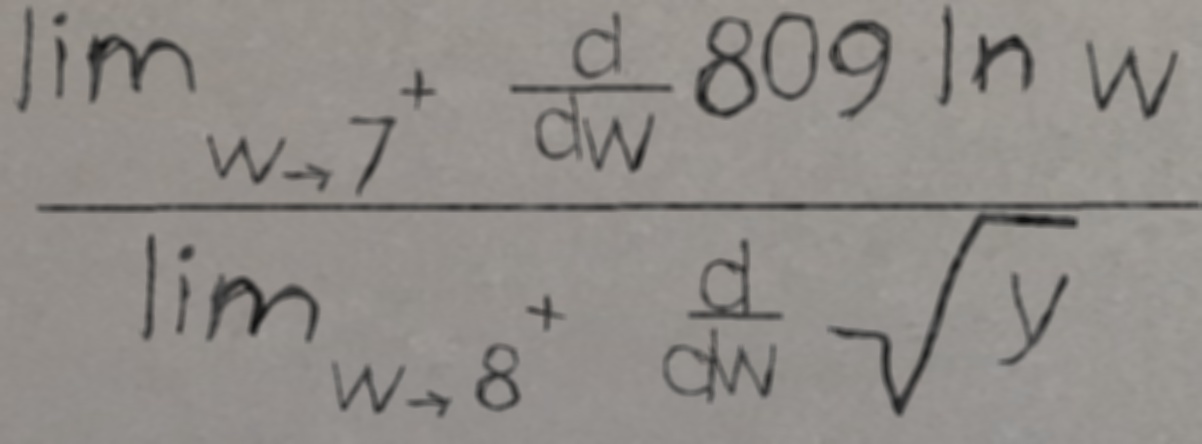 \frac{\lim_{w \to 7^+} \frac{d}{dw} 809 \ln w}{\lim_{w \to 8^+} \frac{d}{dw} \sqrt{y}}